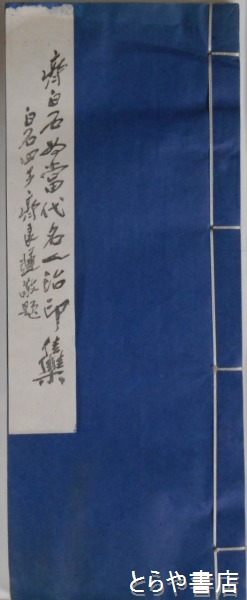 齊白石為當代名人治印集
白石四子齊良遲敬題
とらや書店